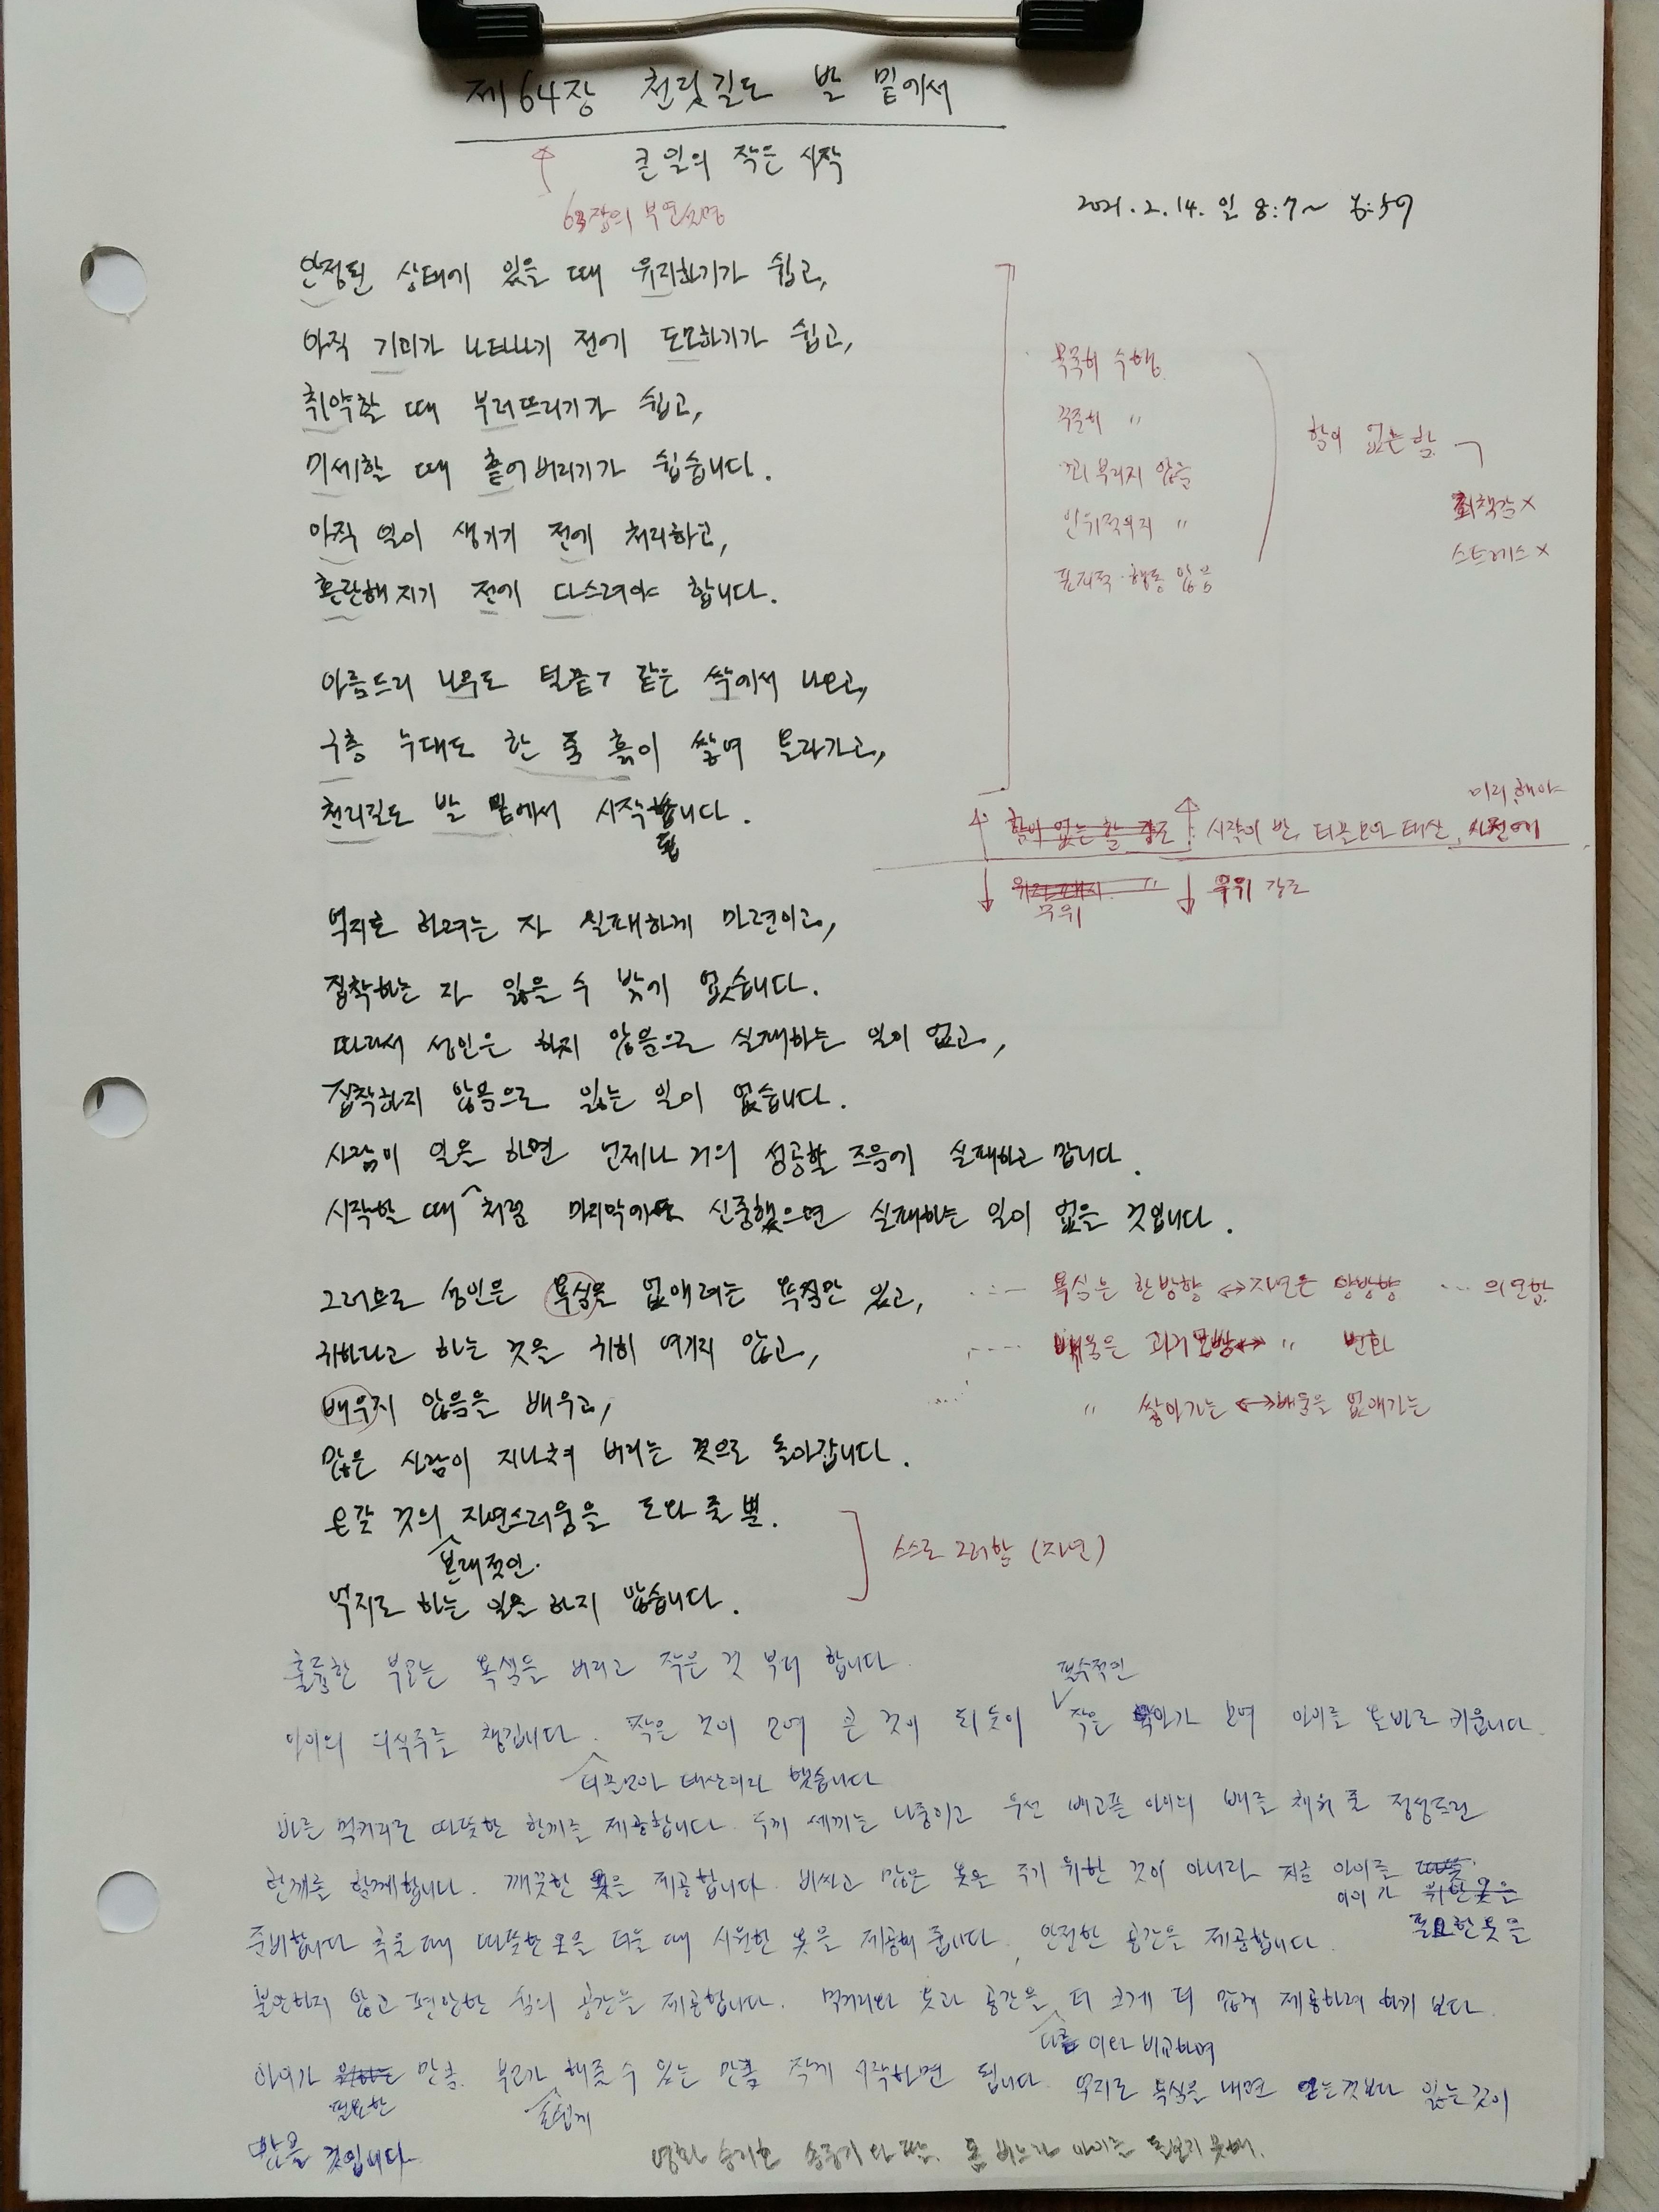 제64장 천릿길도 발 밑에서
큰 일의 작은 시작
63장의 부연설명
2021. 2. 14. 일 8:7~
안정된 상태에 있을 때 유지하기가 쉽고,
아직 기미가 나타나기 전에 도모하기가 쉽고,
취약할 때 부러뜨리기가 쉽고,
미세할 때 흩어버리기가 쉽습니다.
아직 일이 생기기 전에 처리하고,
혼란해지기 전에 다스려야 합니다.
묵묵히 수행
꾸준히 〃
꾀 부리지 않음
인위적이지 〃
표피적 행동 않음
함이 없는 함
죄책감 ×
스트레스 ×
아름드리 나무도 털끝 같은 싹에서 나오고,
구층 누대도 한 줌 흙이 쌓여 올라가고,
천리길도 발 밑에서 시작됩니다.
미리 해야
함이 없는 함 강조 시작이 반, 티끌모아 태산, 사전에
〃 무위 강조
무위
억지로 하려는 자 실패하게 마련이고,
집착하는 자 잃을 수 밖에 없습니다.
따라서 성인은 하지 않음으로 실패하는 일이 없고,
집착하지 않음으로 잃는 일이 없습니다.
사람이 일을 하면 언제나 거의 성공할 즈음에 실패하고 맙니다.
시작할 때 처럼 마지막에도 신중했으면 실패하는 일이 없을 것입니다.
그러므로 성인은 욕심을 없애려는 욕심만 있고, 욕심은 한방향 ↔ 자연은 양방향 … 의 연합
귀하다고 하는 것을 귀히 여기지 않고, 배움은 과거모방 ↔ 〃 변화
배우지 않음을 배우고, 〃 쌓아가는 ↔ 배움을 없애가는
많은 사람이 지나쳐 버리는 것으로 돌아갑니다.
온갖 것의 자연스러움을 도와 줄 뿐.
본래적인
스스로 그러함 (자연)
억지로 하는 일을 하지 않습니다.
훌륭한 부모는 욕심을 버리고 작은 것 부터 합니다.
필수적인
아이의 의식주를 챙깁니다. 작은 것이 모여 큰 것이 되듯이 작은 모여 아이를 올바로 키웁니다.
티끌모아 태산이라 했습니다
바른 먹거리로 따뜻한 한끼를 제공합니다. 두끼 세끼는 나중이고 우선 배고픈 아이의 배를 채워 줄 정성드린
한끼를 함께합니다. 깨끗한 옷을 제공합니다. 비싸고 많은 옷을 주기 위한 것이 아니라 지금 아이를 따뜻
아이가 위한 옷을
필요한 옷을
준비합니다 추울 때 따뜻한 옷을 더울 때 시원한 옷을 제공해 줍니다. 안전한 공간을 제공합니다.
불안하지 않고 편안한 쉼의 공간을 제공합니다. 먹거리와 옷과 공간을 더 크게 더 많게 제공하려 하기 보다
다른 이와 비교하며
아이가 원하는 만큼. 부모가 해줄 수 있는 만큼 작게 시작하면 됩니다. 억지로 욕심을 내면 얻는 것보다 잃는 것이
필요한
손쉽게
많을 것입니다.
영화 승리호 송중기와 딸. 돈 버느라 아이를 돌보지 못해.